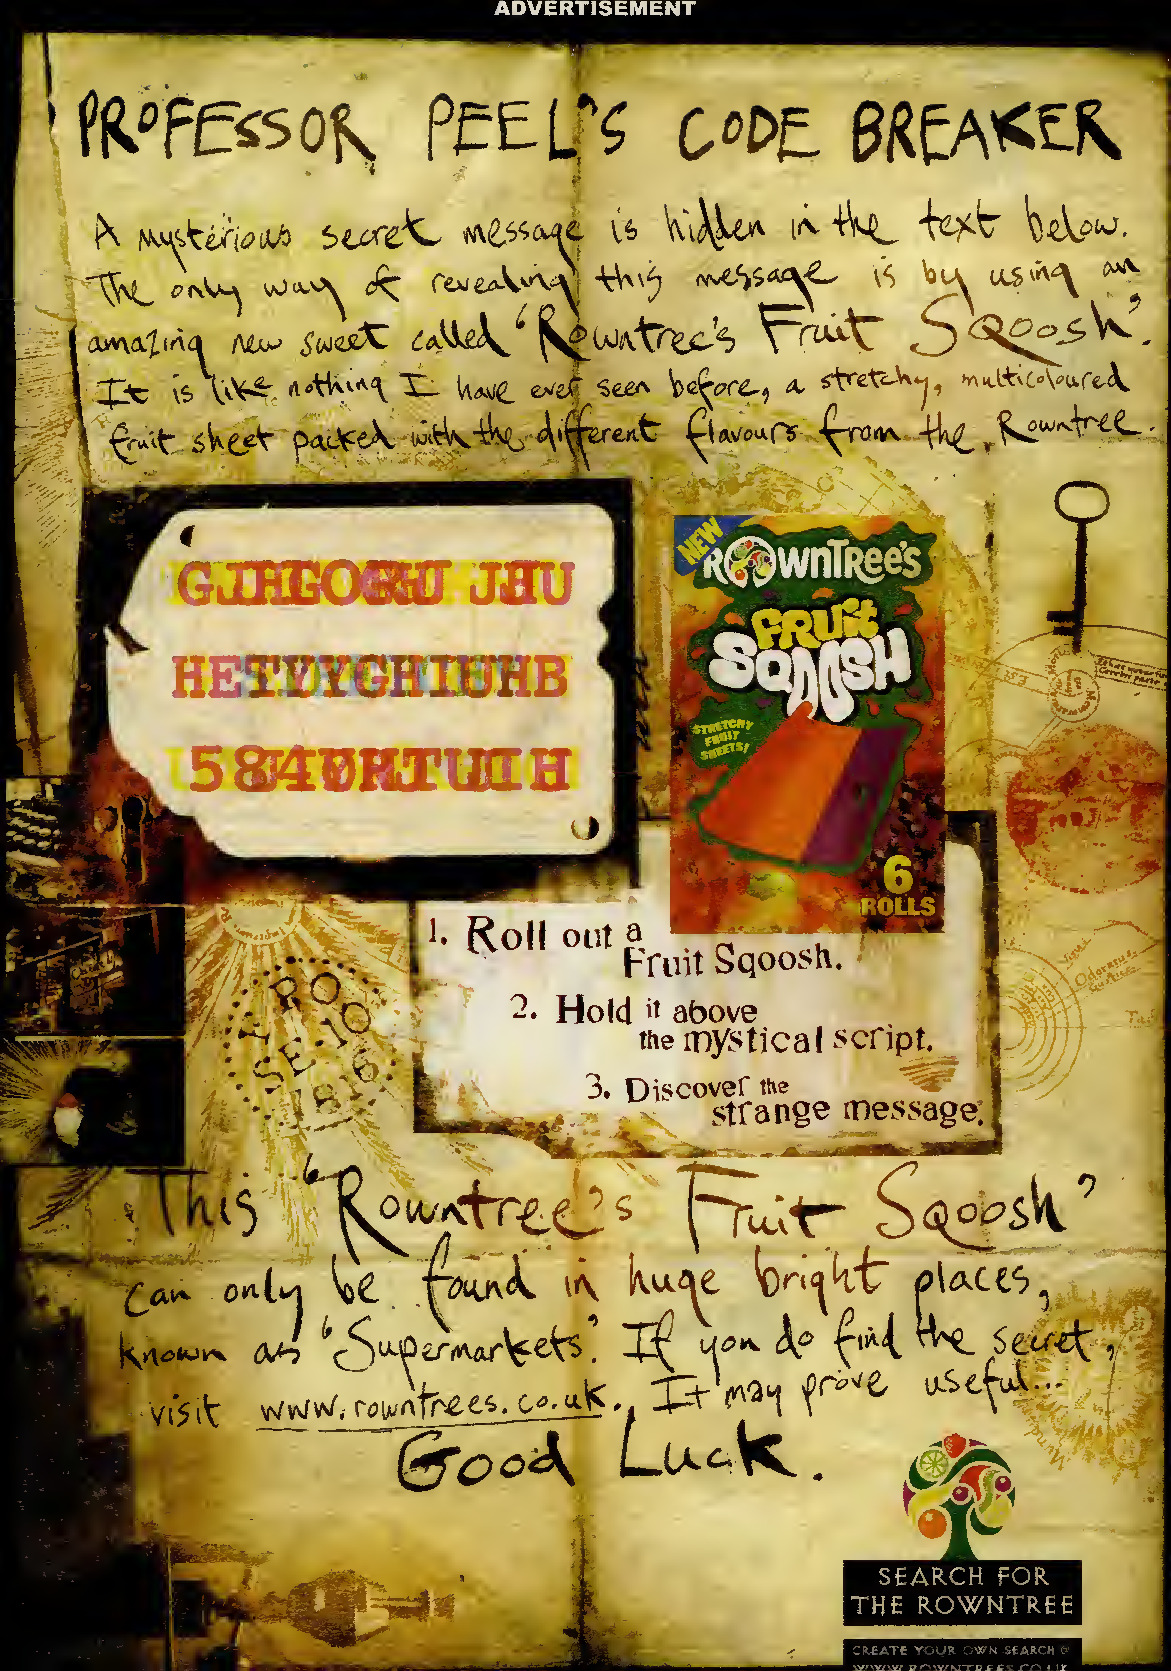 ADVERTISEMENT
PROFESSOR PEEL'S CODE BREAKER
A mysterious secret message is hidden in the text below.
The only way of revealing this message is by using an
amazing new sweet called 'Rowntree's Fruit Sqoosh'.
It is like nothing I have ever seen before, a stretchy, multicoloured
fruit sheet packed with the different flavours from the Rowntree.
NEW
ROWNTREE'S
FRUIT
SQOOSH
STRETCHY
FRUIT
SHEETS!
6
ROLLS
1. Roll out a
Fruit Sqoosh.
2. Hold it above
the mystical script.
3. Discover the
strange message.
This 'Rowntree's Fruit Sqoosh'
can only be found in huge bright places,
known as 'Supermarkets'. If you do find the secret,
visit www.rowntrees.co.uk. It may prove useful...
Good Luck.
SEARCH FOR
THE ROWNTREE
CREATE YOUR OWN SEARCH @
WWW.ROWNTREES.CO.UK